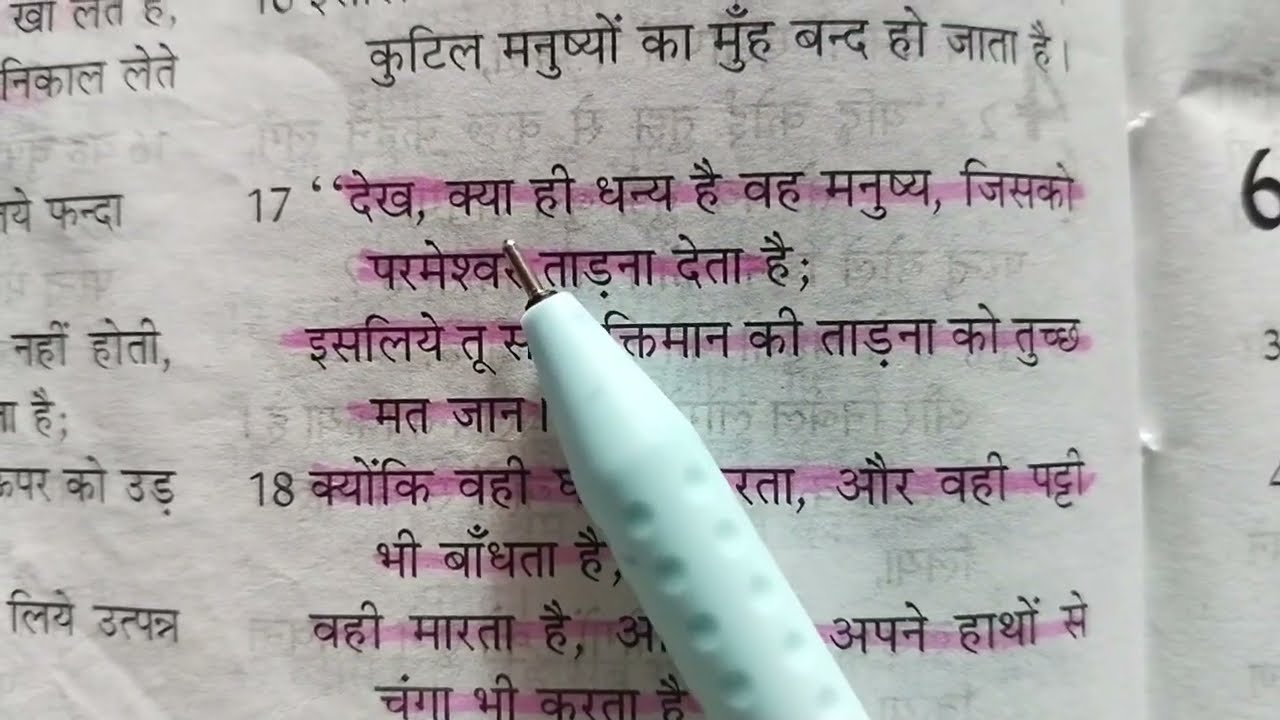 खा लेते हैं,
निकाल लेते
फन्दा
नहीं होती,
है;
को उड़
लिये उत्पन्न
कुटिल मनुष्यों का मुँह बन्द हो जाता है।
17 “देख, क्या ही धन्य है वह मनुष्य, जिसको
परमेश्वर ताड़ना देता है;
इसलिये तू की ताड़ना को तुच्छ
मत जान।
18 क्योंकि वही और वही पट्टी
भी बाँधता है,
वही मारता है, अपने हाथों से
चंगा भी करता है
6
3